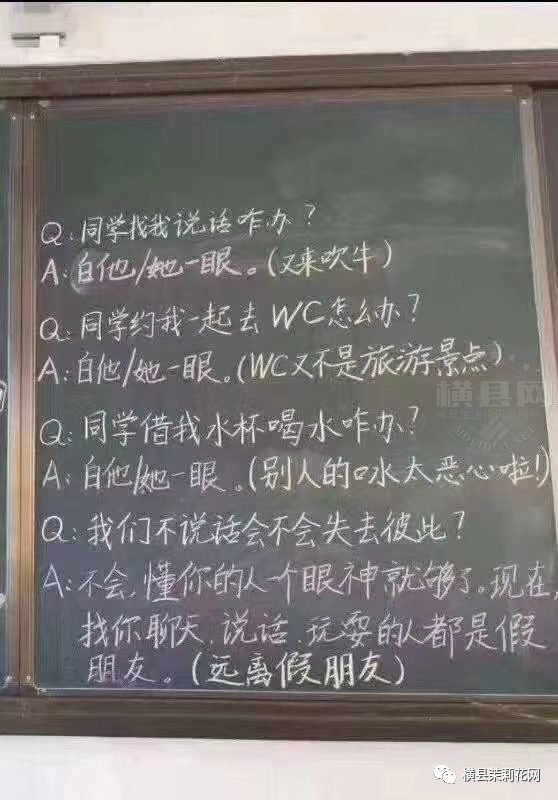 Q:同学找我说话咋办?
A:白他/她一眼。(又来吹牛)
Q:同学约我一起去WC怎么办?
A:白他/她一眼。(WC又不是旅游景点)
Q:同学借我水杯喝水咋办?
A:白他/她一眼。(别人的口水太恶心啦!)
Q:我们不说话会不会失去彼此?
A:不会,懂你的人一个眼神就够了。现在,
找你聊天、说话、玩耍的人都是假
朋友。(远离假朋友)
横县网
横县茉莉花网